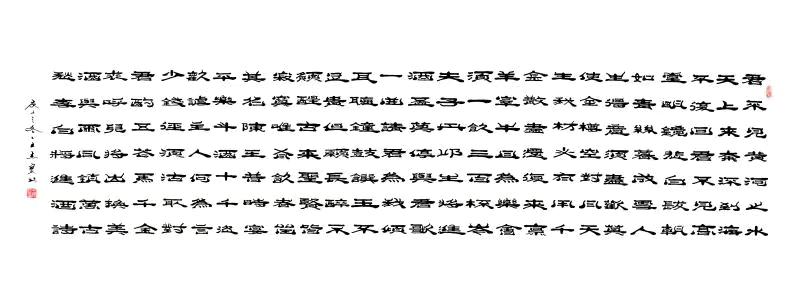 君不見黃河之水
天上來奔流到海
不復回君不見高
堂明鏡悲白髮朝
如青絲暮成雪人
生得意須盡歡莫
使金樽空對月天
生我材必有用千
金散盡還復來烹
羊宰牛且為樂會
須一飲三百杯岑
夫子丹邱生將進
酒盃莫停與君歌
一曲請君為我傾
耳聽鐘鼓饌玉不
足貴但願長醉不
願醒古來聖賢皆
寂寞唯有飲者留
其名陳王昔時宴
平樂斗酒十千恣
歡謔主人何為言
少錢徑須沽取對
君酌五花馬千金
裘呼兒將出換美
酒與爾同銷萬古
愁李白將進酒詩